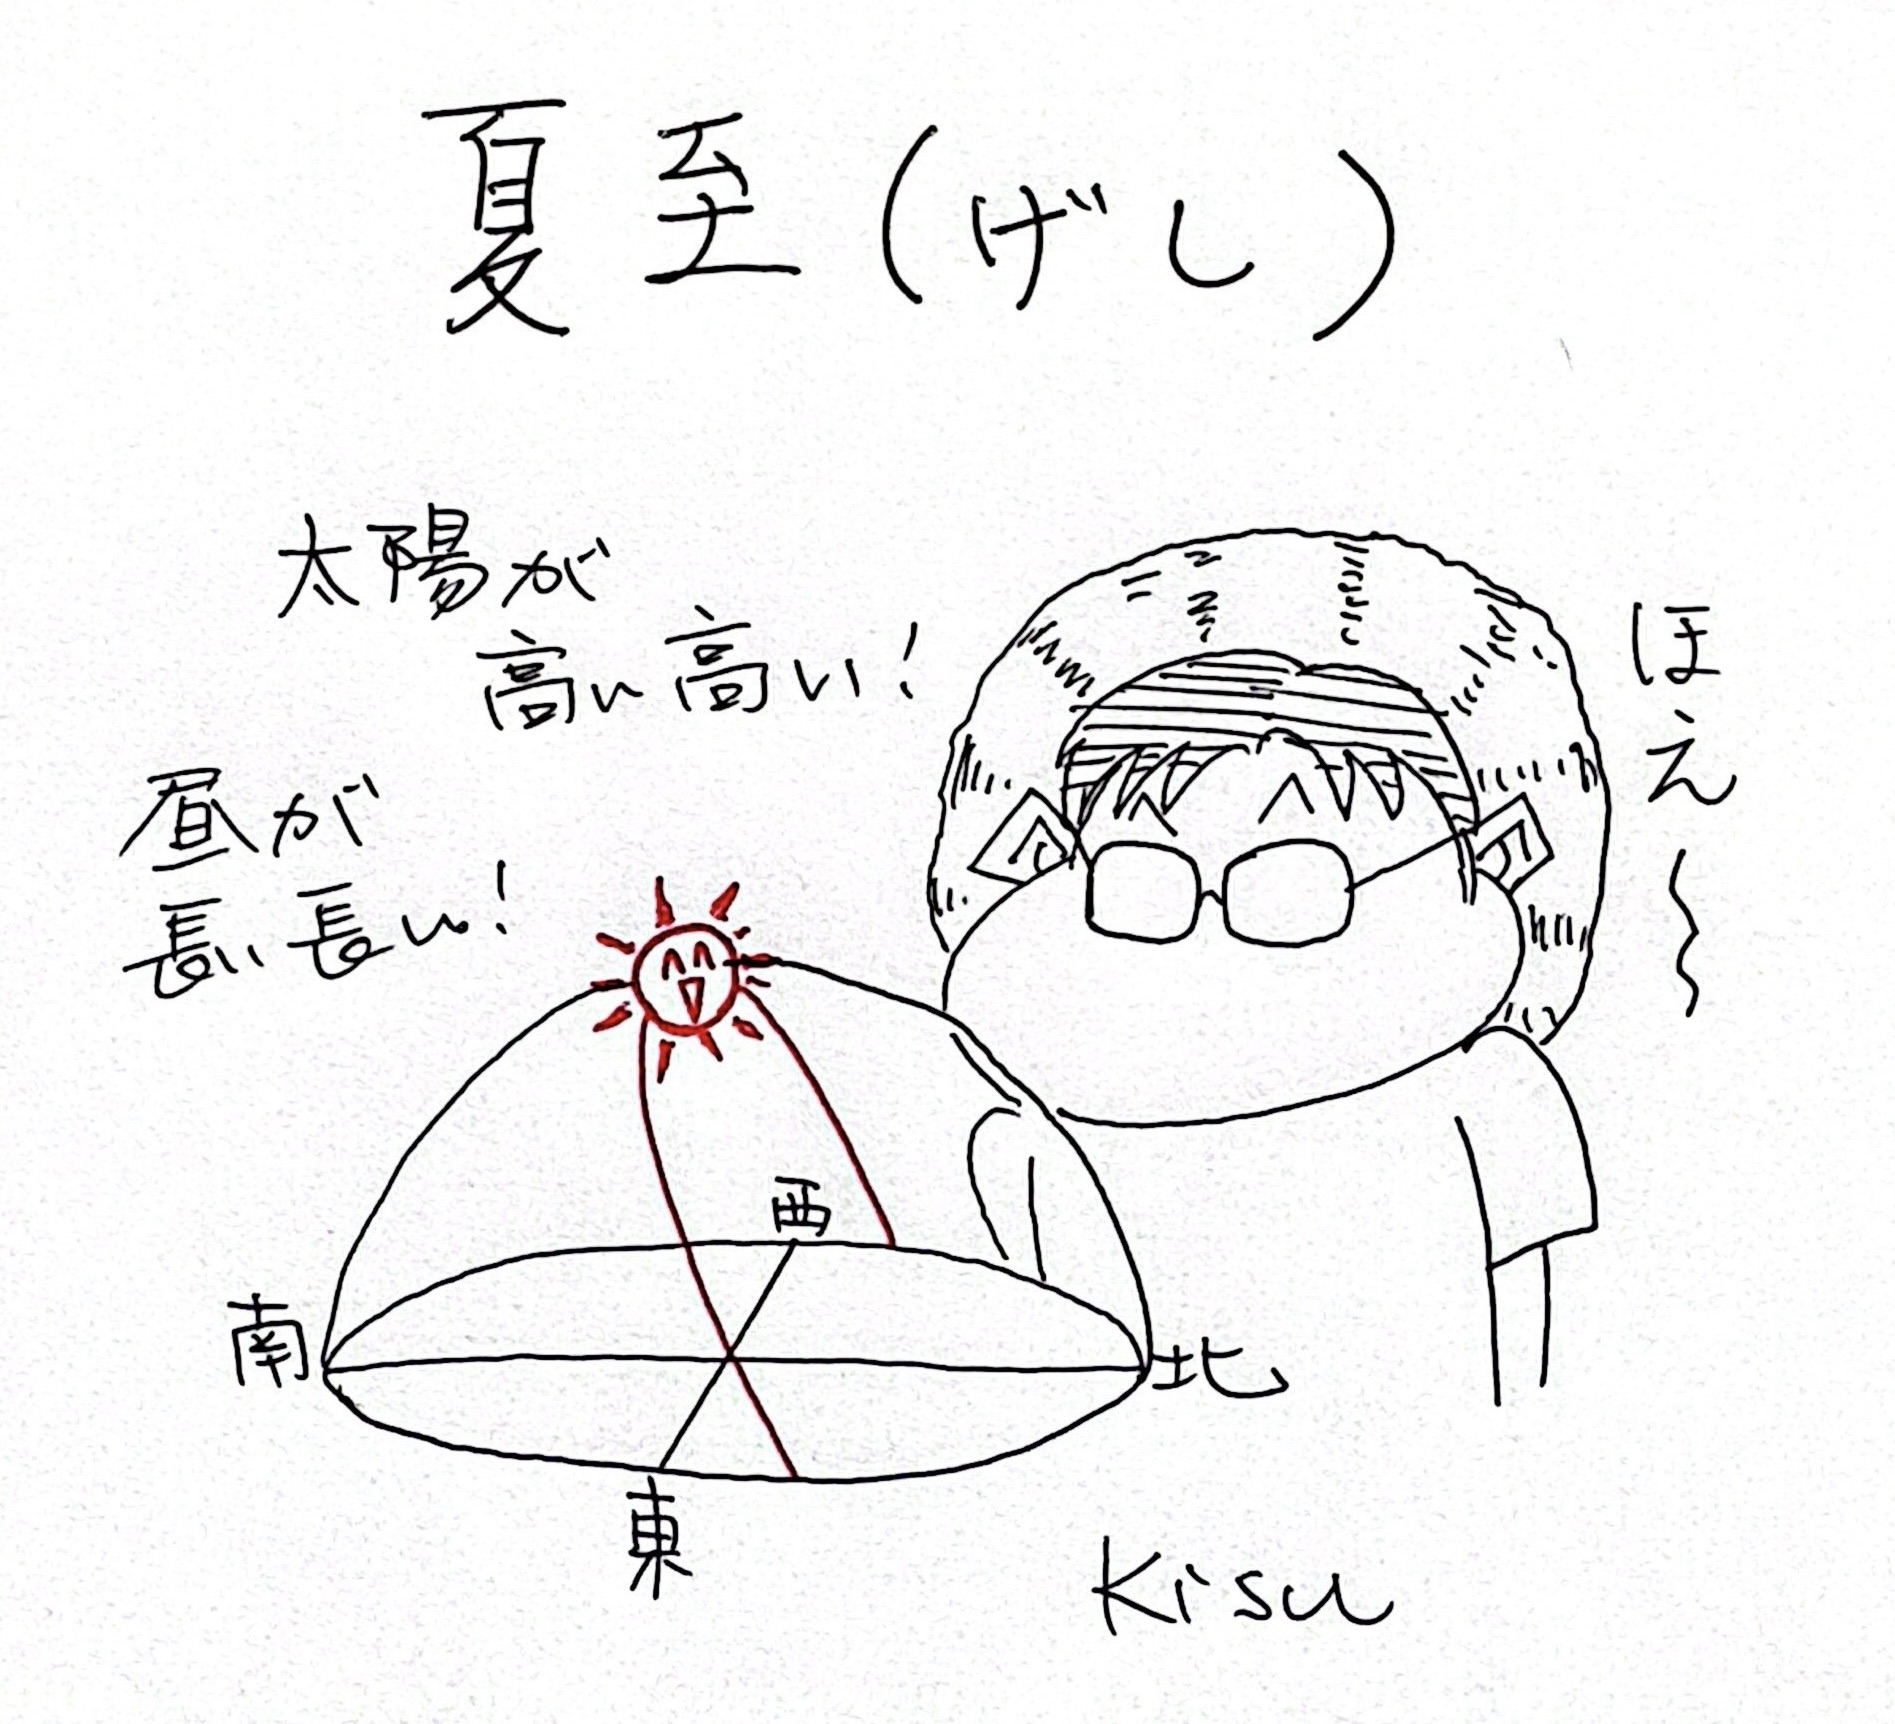 夏至(げし)
太陽が
高い高い!
昼が
長い長い!
ほえ〜
西
南
北
東
Kisu